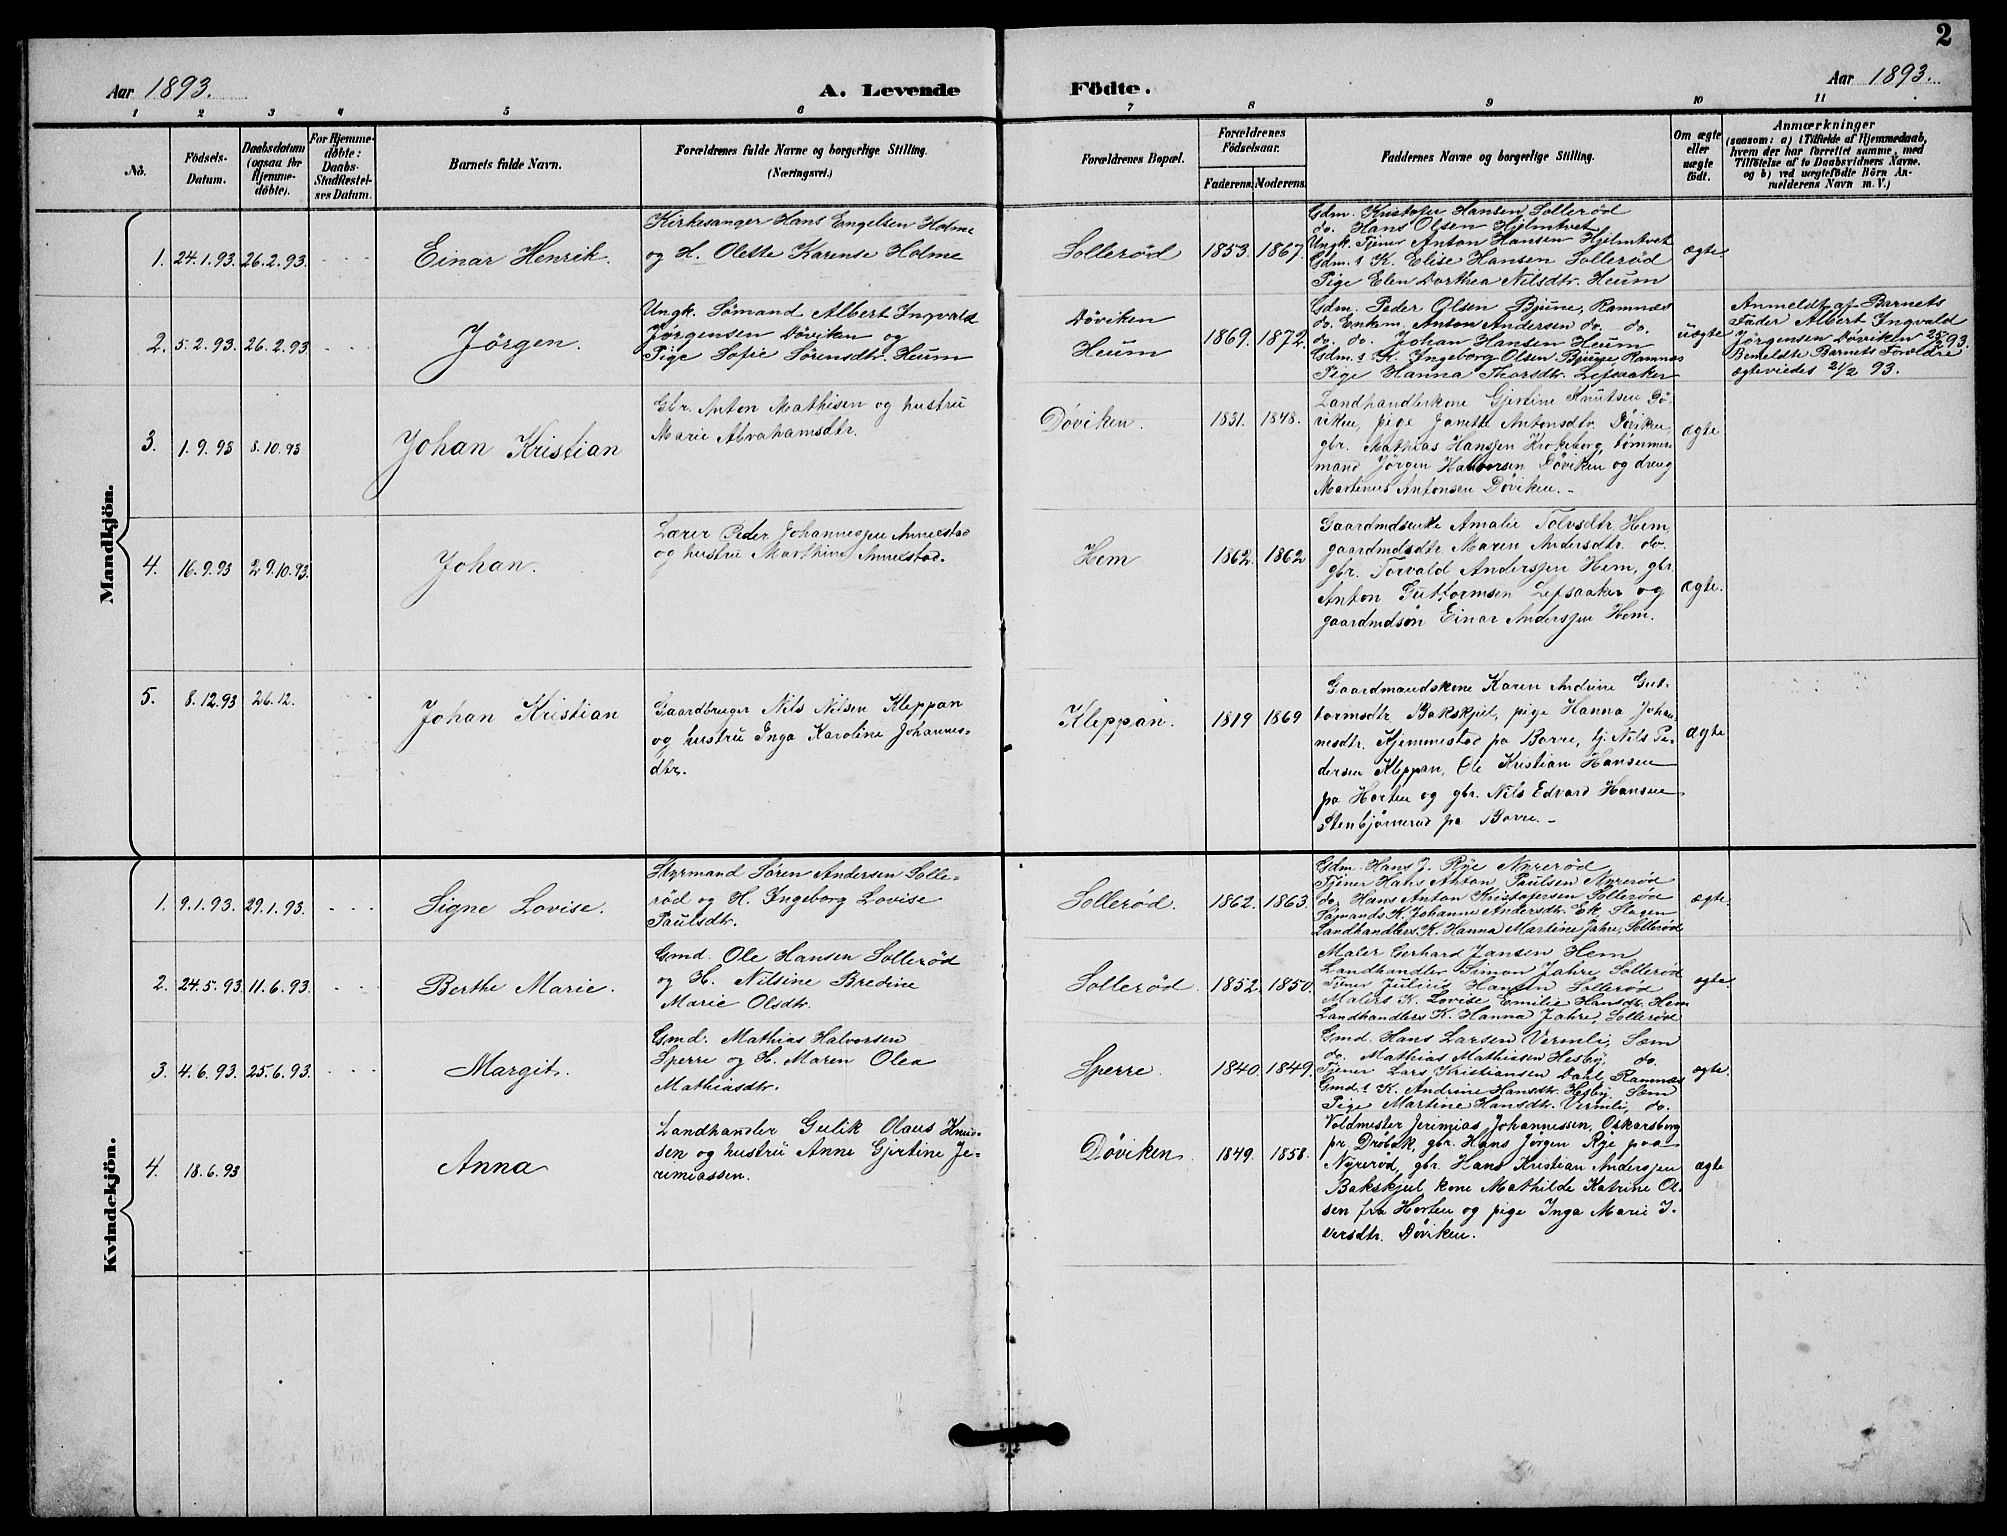 2
Aar 1893.
A. Levende
Födte.
Aar 1893.
1 2 3 4 5 6 7 8 9 10 11
No.
Födsels-
Datum.
Daabsdatum
(ogsaa för
Hjemme-
döbte).
For Hjemme-
döbte:
Daabs-
Stadfæstel-
ses Datum.
Barnets fulde Navn.
Forældrenes fulde Navne og borgerlige Stilling.
(Næringsvei.)
Forældrenes Bopæl.
Forældrenes
Födselsaar.
Faderens. Moderens.
Faddernes Navne og borgerlige Stilling.
Om ægte
eller
uægte
födt.
Anmærkninger
(saasom: a) i Tilfælde af Hjemmedaab,
hvem der har forrettet samme, med
Tilföielse af to Daabsvidners Navne.
og b) ved uægtefödte Börn An-
melderens Navn m. V.)
Mandkjön.
1. 24.1.93. 26.2.93.
Einar Henrik.
Kirkesanger Hans Engelsen Holme
og H. Olette Karense Holme
Sollerød
1853. 1867.
Gdm. Kristofer Hansen Sollerød
do. Hans Olsen Hjelmtvet
Ungk. Tjener Anton Hansen Hjelmtvet
Gdm.s K. Elise Hansen Sollerød
Pige Elen Dorthea Nilsdtr. Heum
ægte
2. 5.2.93. 26.2.93.
Jörgen.
Ungk. Sømand Albert Ingvald
Jørgensen Døviken og
Pige Sofie Sørensdtr. Heum
Døviken
Heum
1869. 1872.
Gdm. Peder Olsen Bjune, Ramnæs
do. Enkm. Anton Andersen do. do.
do. do. Johan Hansen Heum
Gdm.s K. Ingeborg Olsen Bjune Ramnæs
Pige Hanna Thorsdtr. Lefsaaker
uægte
Anmeldt af Barnets
Fader Albert Ingvald
Jørgensen Døviken 25/2 93.
Bemeldte Barnets Forældre
ægteviedes 21/2 93.
3. 1.9.93 8.10.93
Johan Kristian
Gbr. Anton Mathisen og hustru
Marie Abrahamsdtr.
Døviken.
1831. 1848.
Landhandlerkone Gjertine Knutsen Dø-
viken, pige Janette Antonsdtr. Døviken,
gbr. Mathias Hansen Krokeborg, tømmer-
mand Jörgen Halvorsen Døviken og dreng
Martinus Antonsen Døviken. -
ægte
4. 16.9.93 29.10.93.
Johan.
Lærer Peder Johannesen Annestad
og hustru Marthine Annestad.
Hem
1862. 1862
Gaardmdsenke Amalie Tolvsdtr. Hem,
gaardmdsdtr. Maren Andersdtr. do.
gbr. Torvald Andersen Hem, gbr.
Anton Guttormsen Lefsaaker og
gaardmdsøn Einar Andersen Hem.
ægte.
5. 8.12.93 26.12.
Johan Kristian
Gaardbruger Nils Nilsen Kleppan
og hustru Inga Karoline Johannes-
dtr.
Kleppan.
1819 1869
Gaardmandskone Karen Andrine Gut-
tormsdtr. Bakskjul, pige Hanna Johan-
nesdtr. Kjemmestad pa Borre, tj. Nils Pe-
dersen Kleppan, Ole Kristian Hansen
pa Horten og gbr. Nils Edvard Hansen
Stenbjørnerud pa Borre. -
ægte
Kvindekjön.
1. 9.1.93. 29.1.93.
Signe Lovise.
Styrmand Søren Andersen Solle-
rød og H. Ingeborg Lovise
Paulsdtr.
Sollerød.
1862. 1863.
Gdm. Hans J. Rÿe Nyrerød
Tjener Hans Anton Paulsen Nyrerød
do. Hans Anton Kristofersen Sollerød
Sømands K. Johanne Andersdtr. Ek, Slagen
Landhandlers K. Hanna Martine Jahre, Sollerød
ægte.
2. 24.5.93. 11.6.93.
Berthe Marie.
Gmd. Ole Hansen Sollerød
og H. Nilsine Bredine
Marie Olsdtr.
Sollerød
1852. 1850.
Maler Gerhard Jansen Hem
Landhandler Simon Jahre Sollerød
Tjener Julius Hansen Sollerød
Malers K. Lovise Emilie Hansdtr. Hem
Landhandlers K. Hanna Jahre, Sollerød
ægte
3. 4.6.93. 25.6.93.
Margit.
Gmd. Mathias Halvorsen
Sperre og H. Maren Olea
Mathiasdtr.
Sperre.
1840. 1849.
Gmd. Hans Larsen Vermli, Sæm
do. Mathias Mathiasen Hesby, do.
Tjener Lars Kristiansen Dahl, Ramnæs
Gmd.s K. Andrine Hansdtr. Hesby, Sæm
Pige Martine Hansdtr. Vermli, do.
ægte.
4. 18.6.93
Anna
Landhandler Gulik Olaus Knud-
sen og hustru Anne Gjertine Je-
remiassen.
Døviken.
1849. 1858.
Voldmester Jerimias Johannessen, Oskarsborg
pr. Drøbak, gbr. Hans Jørgen Rye paa
Nyrerød, gbr. Hans Kristian Andersen
Bakskjul kone Mathilde Katrine Ol-
sen fra Horten og pige Inga Marie I-
versdtr. Døviken.
ægte